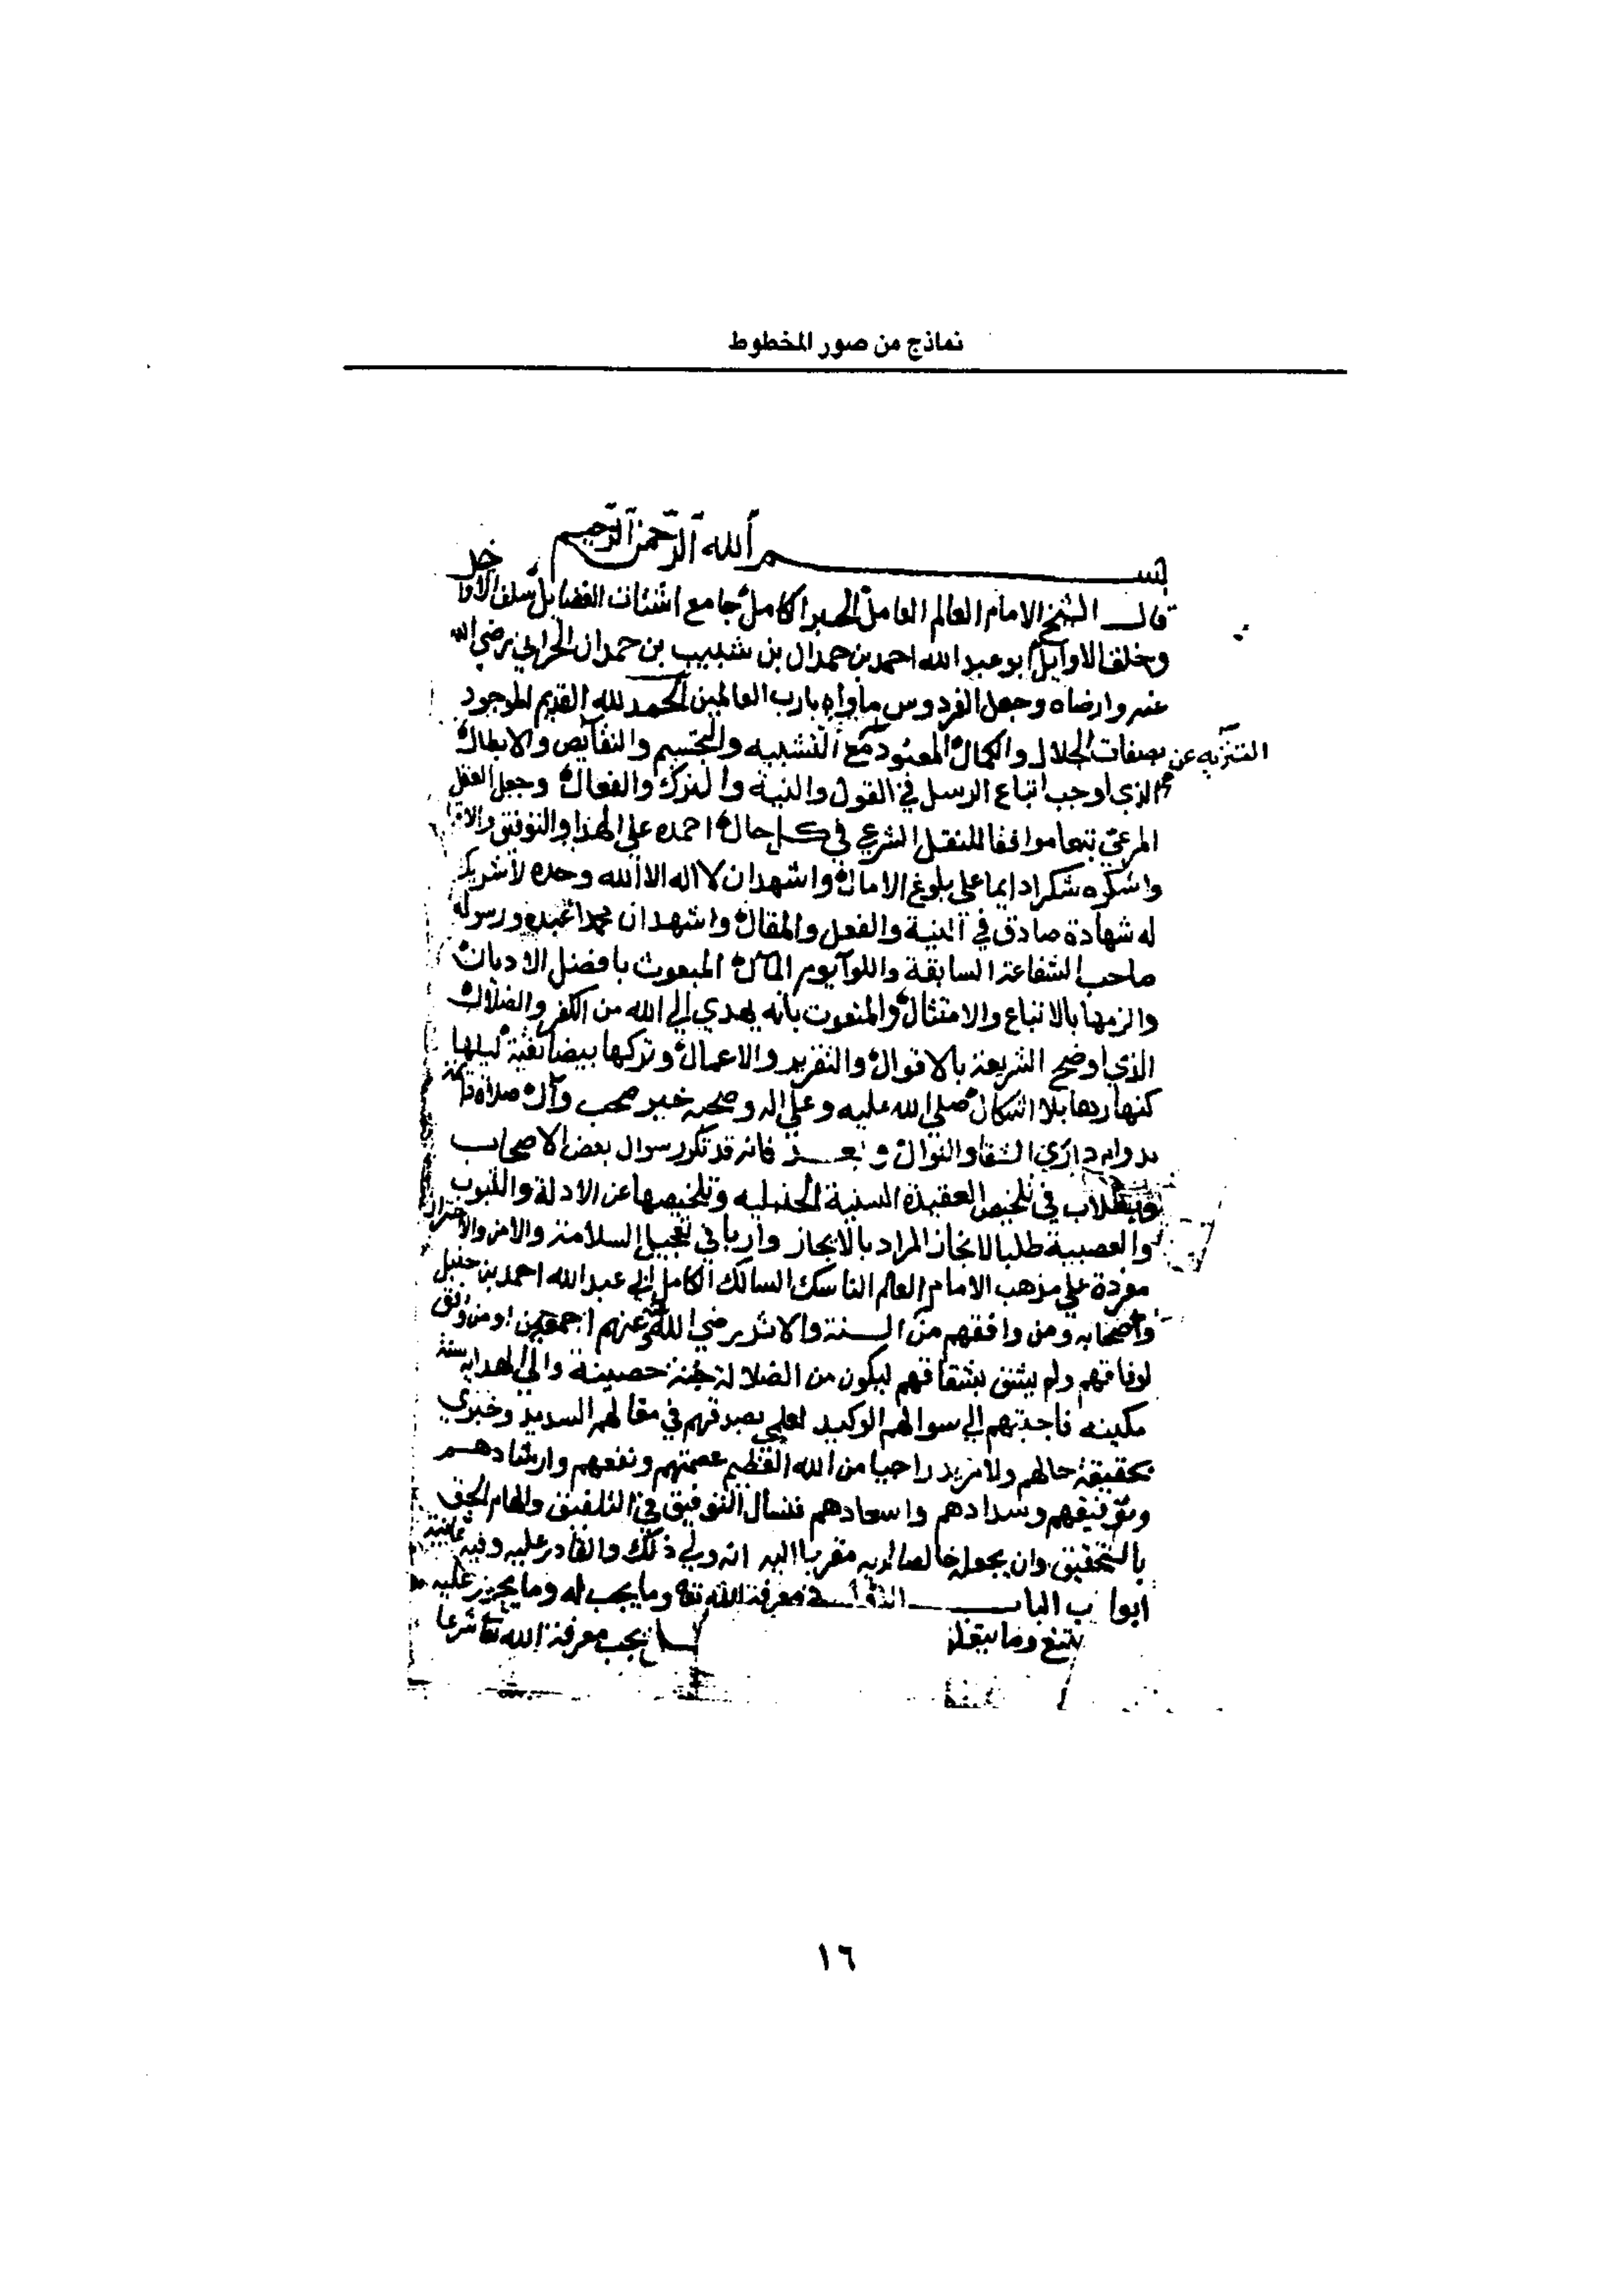 نماذج من صور المخطوط
بسم الله الرحمن الرحيم
قال الشيخ الامام العالم العامل الحبر الكامل جامع اشتات الفضايل سلف الاوا خل
وخلف الاوايل ابو عبد الله احمد بن حمدان بن شبيب بن حمدان الحراني رضي الله
عنه وارضاه وجعل الفردوس ماواه يا رب العالمين الحمد لله القديم الموجود
بصفات الجلال والكمال المعبود مع التشبيه والتجسيم والنقايص والابطال
التنزيه عن
الذي اوجب اتباع الرسل في القول والنية والترك والفعال وجعل العقل
المرعي تبعا موافقا للنقل الشرعي في كل حال احمده على الهدا والتوفيق
واشكره شكرا دايما على بلوغ الامال واشهد ان لا اله الا الله وحده لا شريك
له شهادة صادق في النية والفعل والمقال واشهد ان محمدا عبده ورسوله
صاحب الشفاعة السابقة واللوا يوم المآل المبعوث بافضل الاديان
والزمها بالاتباع والامتثال والمنعوت بانه يهدي الى الله من الكفر والضلال
الذي اوضح الشريعة بالاقوال والتقرير والاعمال وتركها بيضا نقية ليلها
كنهارها بلا اشكال صلى الله عليه وعلى اله وصحبه خير صحب وآل صلاة دائمة
بدوام داري الشقا والنوال وبعد فانه قد تكرر سوال بعض الاصحاب
والطلاب في تلخيص العقيدة السنية الحنبليه وتلخيصها عن الادلة
والعصبية طلبا للانجاز المراد بالايجاز في تعجيل السلامة والامن والاحتراز
مفردة على مذهب الامام العالم الناسك السالك الكامل ابي عبد الله احمد بن حنبل
واصحابه ومن وافقهم من السنة والاثر رضي الله عنه وعنهم اجمعين ومن وفق
لوفاقهم ولم يشق بشقاقهم ليكون من الضلالة جنة حصينة والى الهداية سنة
مكينه فاجبتهم الى سوالهم الوكيد لعلمي بصدقهم في مقالهم السديد وخبرتي
بحقيقة حالهم ولا مزيد راجيا من الله العظيم عصمتهم ونفعهم وارشادهم
وتوفيقهم وسدادهم واسعادهم فنسال التوفيق في التلفيق والهام الحق
بالتحقيق وان يجعله خالصا لديه مقربا اليه انه ولي ذلك والقادر عليه وفيه ثمانية
ابواب الباب الاول في معرفة الله تعالى وما يجب له وما يجوز عليه وما
يمتنع وما يتعلق يجب معرفة الله تعالى شرعا
١٦